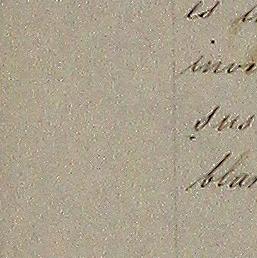 es
inv
sus
blan